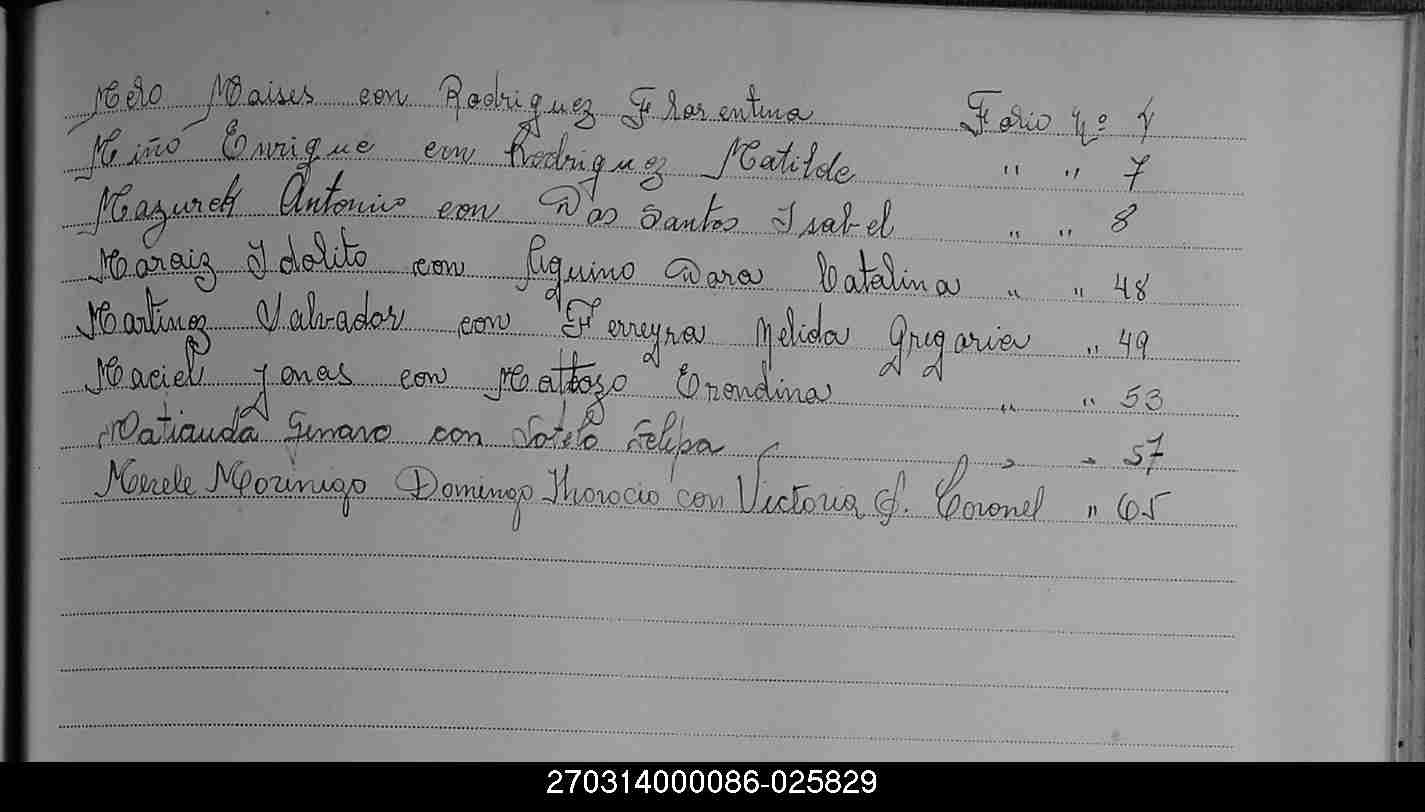 Melo Maises con Rodriguez Flarentina Folio Nº 1
Miño Enrique con Rodriguez Matilde " " 7
Mazurek Antonio con Das Santos Isabel " " 8
Maraiz Idolito con Aquino Dara Catalina " " 48
Martinez Salvador con Ferreyra Melida Gregaria " 49
Maciel Jonas con Mattozo Erondina " " 53
Matiauda Genaro con Sotelo Felipa " " 57
Merele Morinigo Domingo Horocio con Victoria G. Coronel " 65
270314000086-025829